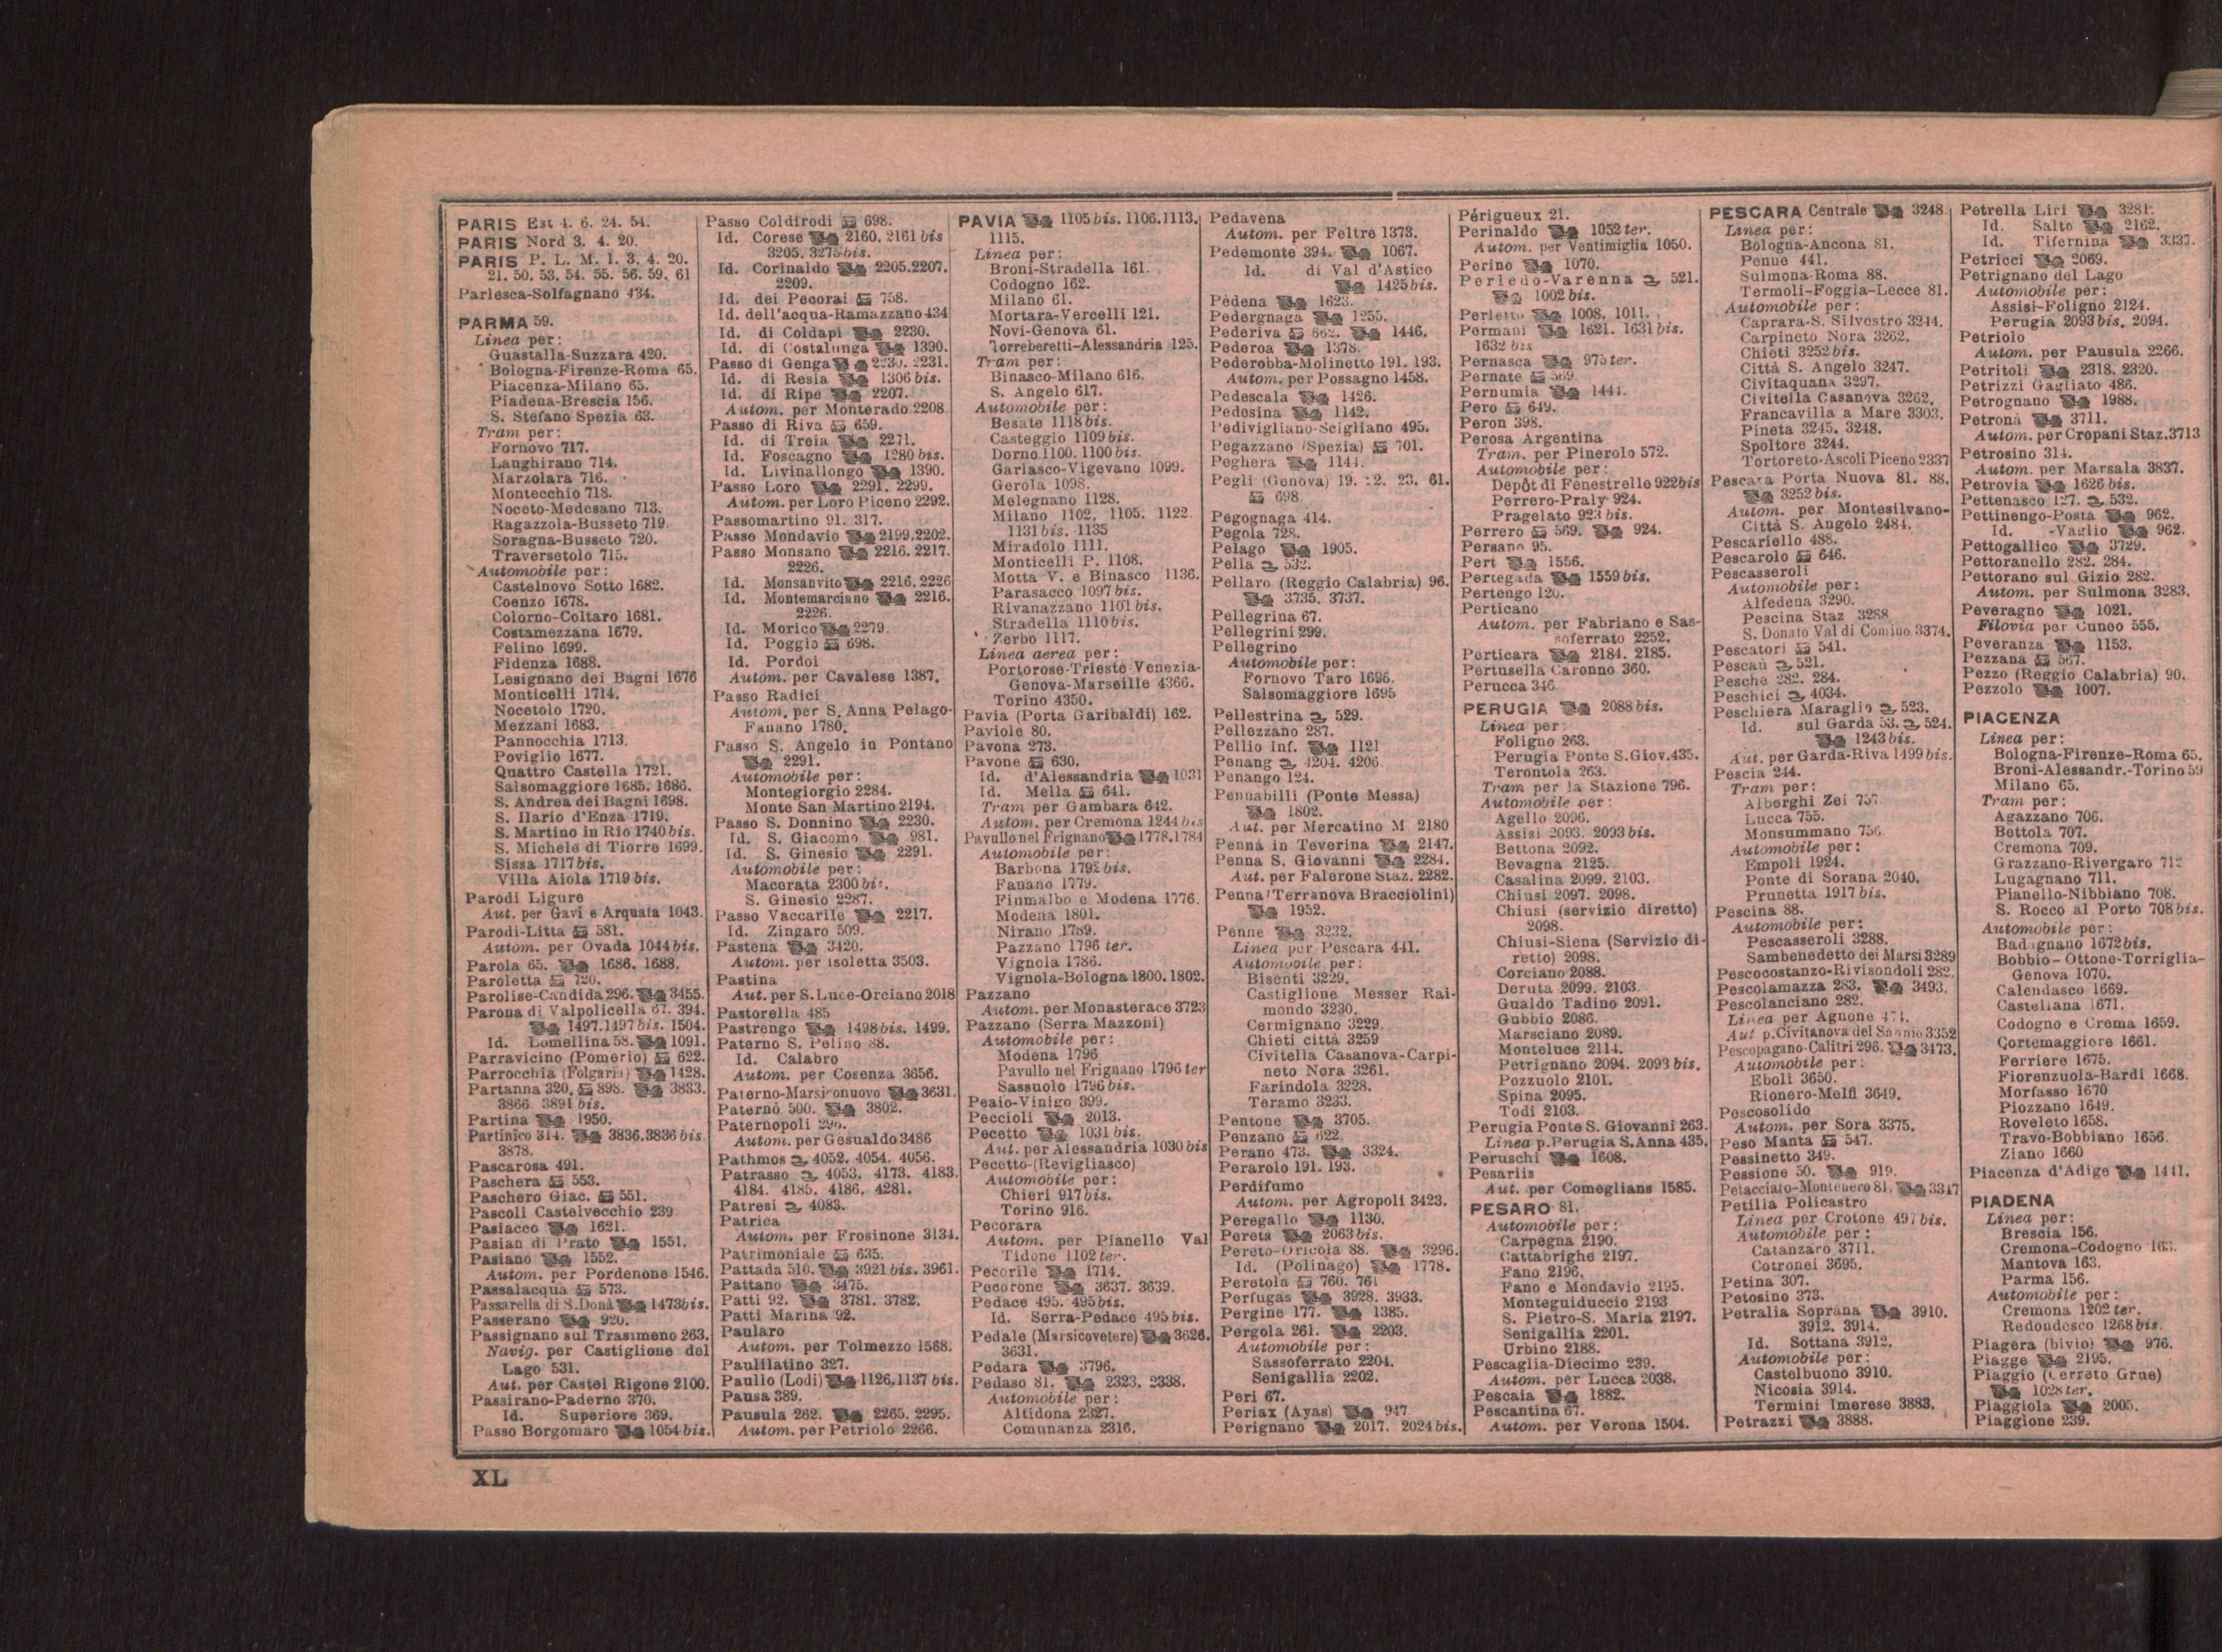 PARIS Est 4. 6. 24. 54.
PARIS Nord 3. 4. 20.
PARIS P. L. M. 1. 3. 4. 20.
21. 50. 53. 54. 55. 56. 59. 61
Parlesca-Solfagnano 434.
PARMA 59.
Linea per:
Guastalla-Suzzara 420.
Bologna-Firenze-Roma 65.
Piacenza-Milano 65.
Piadena-Brescia 156.
S. Stefano Spezia 63.
Tram per:
Fornovo 717.
Langhirano 714.
Marzolara 716.
Montecchio 718.
Noceto-Medesano 713.
Ragazzola-Busseto 719.
Soragna-Busseto 720.
Traversetolo 715.
Automobile per:
Castelnovo Sotto 1682.
Coenzo 1678.
Colorno-Coltaro 1681.
Costamezzana 1679.
Felino 1699.
Fidenza 1688.
Lesignano dei Bagni 1676
Monticelli 1714.
Nocetolo 1720.
Mezzani 1683.
Pannocchia 1713.
Poviglio 1677.
Quattro Castella 1721.
Salsomaggiore 1685. 1686.
S. Andrea dei Bagni 1698.
S. Ilario d'Enza 1719.
S. Martino in Rio 1740 bis.
S. Michele di Tiorre 1699.
Sissa 1717 bis.
Villa Aiola 1719 bis.
Parodi Ligure
Aut. per Gavi e Arquata 1043.
Parodi-Litta 581.
Autom. per Ovada 1044 bis.
Parola 65. 1686. 1688.
Paroletta 720.
Parolise-Candida 296. 3455.
Parona di Valpolicella 67. 394.
1497. 1497 bis. 1504.
Id. Lomellina 58. 1091.
Parravicino (Pomerio) 622.
Parrocchia (Folgaria) 1428.
Partanna 320. 898. 3833.
3866. 3891 bis.
Partina 1950.
Partinico 314. 3836. 3836 bis.
3878.
Pascarosa 491.
Paschera 553.
Paschero Giac. 551.
Pascoli Castelvecchio 239
Pasiacco 1621.
Pasian di Prato 1551.
Pasiano 1552.
Autom. per Pordenone 1546.
Passalacqua 573.
Passarella di S. Donà 1473 bis.
Passerano 920.
Passignano sul Trasimeno 263.
Navig. per Castiglione del
Lago 531.
Aut. per Castel Rigone 2100.
Passirano-Paderno 370.
Id. Superiore 369.
Passo Borgomaro 1054 bis.
Passo Coldirodi 698.
Id. Corese 2160. 2161 bis
3205. 3275 bis.
Id. Corinaldo 2205. 2207.
2209.
Id. dei Pecorai 758.
Id. dell'acqua-Ramazzano 434
Id. di Coldapi 2230.
Id. di Costalunga 1390.
Passo di Genga 2230. 2231.
Id. di Resia 1306 bis.
Id. di Ripe 2207.
Autom. per Monterado 2208.
Passo di Riva 659.
Id. di Treia 2271.
Id. Foscagno 1280 bis.
Id. Livinallongo 1390.
Passo Loro 2291. 2299.
Autom. per Loro Piceno 2292.
Passomartino 91. 317.
Passo Mondavio 2199. 2202.
Passo Monsano 2216. 2217.
2226.
Id. Monsanvito 2216. 2226
Id. Montemarciano 2216.
2226.
Id. Morico 2279.
Id. Poggio 698.
Id. Pordoi
Autom. per Cavalese 1387.
Passo Radici
Autom. per S. Anna Pelago-
Fanano 1780.
Passo S. Angelo in Pontano
2291.
Automobile per:
Montegiorgio 2284.
Monte San Martino 2194.
Passo S. Donnino 2230.
Id. S. Giacomo 981.
Id. S. Ginesio 2291.
Automobile per:
Macerata 2300 bis.
S. Ginesio 2287.
Passo Vaccarile 2217.
Id. Zingaro 509.
Pastena 3420.
Autom. per Isoletta 3503.
Pastina
Aut. per S. Luce-Orciano 2018
Pastorella 485
Pastrengo 1498 bis. 1499.
Paterno S. Pelino 88.
Id. Calabro
Autom. per Cosenza 3656.
Paterno-Marsiconuovo 3631.
Paternò 500. 3802.
Paternopoli 296.
Autom. per Gesualdo 3486
Pathmos 4052. 4054. 4056.
Patrasso 4053. 4173. 4183.
4184. 4185. 4186. 4281.
Patresi 4083.
Patrica
Autom. per Frosinone 3134.
Patrimoniale 635.
Pattada 510. 3921 bis. 3961.
Pattano 3475.
Patti 92. 3781. 3782.
Patti Marina 92.
Paularo
Autom. per Tolmezzo 1568.
Paulilatino 327.
Paullo (Lodi) 1126. 1137 bis.
Pausa 389.
Pausula 262. 2265. 2295.
Autom. per Petriolo 2266.
PAVIA 1105 bis. 1106. 1113.
1115.
Linea per:
Broni-Stradella 161.
Codogno 162.
Milano 61.
Mortara-Vercelli 121.
Novi-Genova 61.
Torreberetti-Alessandria 125.
Tram per:
Binasco-Milano 616.
S. Angelo 617.
Automobile per:
Besate 1118 bis.
Casteggio 1109 bis.
Dorno 1100. 1100 bis.
Garlasco-Vigevano 1099.
Gerola 1098.
Melegnano 1128.
Milano 1102. 1105. 1122.
1131 bis. 1135
Miradolo 1111.
Monticelli P. 1108.
Motta V. e Binasco 1136.
Parasacco 1097 bis.
Rivanazzano 1101 bis.
Stradella 1110 bis.
Zerbo 1117.
Linea aerea per:
Portorose-Trieste-Venezia-
Genova-Marseille 4366.
Torino 4350.
Pavia (Porta Garibaldi) 162.
Paviole 80.
Pavona 273.
Pavone 630.
Id. d'Alessandria 1031
Id. Mella 641.
Tram per Gambara 642.
Autom. per Cremona 1244 bis
Pavullo nel Frignano 1778. 1784
Automobile per:
Barbona 1792 bis.
Fanano 1779.
Fiumalbo e Modena 1776.
Modena 1801.
Nirano 1789.
Pazzano 1796 ter.
Vignola 1786.
Vignola-Bologna 1800. 1802.
Pazzano
Autom. per Monasterace 3723
Pazzano (Serra Mazzoni)
Automobile per:
Modena 1796
Pavullo nel Frignano 1796 ter
Sassuolo 1796 bis.
Peaio-Vinigo 399.
Peccioli 2013.
Pecetto 1031 bis.
Aut. per Alessandria 1030 bis
Pecetto-(Revigliasco)
Automobile per:
Chieri 917 bis.
Torino 916.
Pecorara
Autom. per Pianello Val
Tidone 1102 ter.
Pecorile 1714.
Pecorone 3637. 3639.
Pedace 495. 495 bis.
Id. Serra-Pedace 495 bis.
Pedale (Marsicovetere) 3626.
3631.
Pedara 3796.
Pedaso 81. 2323. 2338.
Automobile per:
Altidona 2327.
Comunanza 2316.
Pedavena
Autom. per Feltre 1373.
Pedemonte 394. 1067.
Id. di Val d'Astico
1425 bis.
Pèdena 1623.
Pedergnaga 1255.
Pederiva 662. 1446.
Pederoa 1378.
Pederobba-Molinetto 191. 193.
Autom. per Possagno 1458.
Pedescala 1426.
Pedesina 1142.
Pedivigliano-Scigliano 495.
Pegazzano (Spezia) 701.
Peghera 1144.
Pegli (Genova) 19. 22. 23. 61.
698.
Pegognaga 414.
Pegola 728.
Pelago 1905.
Pella 532.
Pellaro (Reggio Calabria) 96.
3735. 3737.
Pellegrina 67.
Pellegrini 299.
Pellegrino
Automobile per:
Fornovo Taro 1696.
Salsomaggiore 1695
Pellestrina 529.
Pellezzano 287.
Pellio Inf. 1121
Penang 4204. 4206.
Penango 124.
Pennabilli (Ponte Messa)
1802.
Aut. per Mercatino M. 2180
Penna in Teverina 2147.
Penna S. Giovanni 2284.
Aut. per Falerone Staz. 2282.
Penna (Terranova Bracciolini)
1952.
Penne 3232.
Linea per Pescara 441.
Automobile per:
Bisenti 3229.
Castiglione Messer Rai-
mondo 3230.
Cermignano 3229.
Chieti città 3259
Civitella Casanova-Carpi-
neto Nora 3261.
Farindola 3228.
Teramo 3233.
Pentone 3705.
Penzano 622.
Perano 473. 3324.
Perarolo 191. 193.
Perdifumo
Autom. per Agropoli 3423.
Peregallo 1130.
Pereta 2063 bis.
Pereto-Oricola 88. 3296.
Id. (Polinago) 1778.
Peretola 760. 761
Perfugas 3928. 3933.
Pergine 177. 1385.
Pergola 261. 2203.
Automobile per:
Sassoferrato 2204.
Senigallia 2202.
Peri 67.
Periax (Ayas) 947
Perignano 2017. 2024 bis.
Périgueux 21.
Perinaldo 1052 ter.
Autom. per Ventimiglia 1050.
Perino 1070.
Perledo-Varenna 521.
1002 bis.
Perletto 1008. 1011.
Permani 1621. 1631 bis.
1632 bis
Pernasca 975 ter.
Pernate 569
Pernumia 1444.
Pero 649.
Peron 398.
Perosa Argentina
Tram. per Pinerolo 572.
Automobile per:
Depôt di Fenestrelle 922 bis
Perrero-Praly 924.
Pragelato 923 bis.
Perrero 569. 924.
Persano 95.
Pert 1556.
Pertegada 1559 bis.
Pertengo 120.
Perticano
Autom. per Fabriano e Sas-
soferrato 2252.
Perticara 2184. 2185.
Pertusella Caronno 360.
Perucca 346
PERUGIA 2088 bis.
Linea per:
Foligno 263.
Perugia Ponte S. Giov. 435.
Terontola 263.
Tram per la Stazione 796.
Automobile per:
Agello 2096.
Assisi 2093. 2093 bis.
Bettona 2092.
Bevagna 2125.
Casalina 2099. 2103.
Chiusi 2097. 2098.
Chiusi (servizio diretto)
2098.
Chiusi-Siena (Servizio di-
retto) 2098.
Corciano 2088.
Deruta 2099. 2103.
Gualdo Tadino 2091.
Gubbio 2086.
Marsciano 2089.
Monteluce 2114.
Petrignano 2094. 2093 bis.
Pozzuolo 2101.
Spina 2095.
Todi 2103.
Perugia Ponte S. Giovanni 263.
Linea p. Perugia S. Anna 435.
Peruschi 1608.
Pesariis
Aut. per Comeglians 1585.
PESARO 81.
Automobile per:
Carpegna 2190.
Cattabrighe 2197.
Fano 2196.
Fano e Mondavio 2195.
Monteguiduccio 2193
S. Pietro-S. Maria 2197.
Senigallia 2201.
Urbino 2188.
Pescaglia-Diecimo 239.
Autom. per Lucca 2038.
Pescaia 1882.
Pescantina 67.
Autom. per Verona 1504.
PESCARA Centrale 3248.
Linea per:
Bologna-Ancona 81.
Penne 441.
Sulmona-Roma 88.
Termoli-Foggia-Lecce 81.
Automobile per:
Caprara-S. Silvestro 3244.
Carpineto Nora 3262.
Chieti 3252 bis.
Città S. Angelo 3247.
Civitaquana 3297.
Civitella Casanova 3262.
Francavilla a Mare 3303.
Pineta 3245. 3248.
Spoltore 3244.
Tortoreto-Ascoli Piceno 2337
Pescara Porta Nuova 81. 88.
3252 bis.
Autom. per Montesilvano-
Città S. Angelo 2484.
Pescariello 488.
Pescarolo 646.
Pescasseroli
Automobile per:
Alfedena 3290.
Pescina Staz 3288
S. Donato Val di Comino 3374.
Pescatori 541.
Pescaù 521.
Pesche 282. 284.
Peschici 4034.
Peschiera Maraglio 523.
Id. sul Garda 53. 524.
1243 bis.
Aut. per Garda-Riva 1499 bis.
Pescia 244.
Tram per:
Alberghi Zei 757
Lucca 755.
Monsummano 756
Automobile per:
Empoli 1924.
Ponte di Sorana 2040.
Prunetta 1917 bis.
Pescina 88.
Automobile per:
Pescasseroli 3288.
Sambenedetto dei Marsi 3289
Pescocostanzo-Rivisondoli 282.
Pescolamazza 283. 3493.
Pescolanciano 282.
Linea per Agnone 474.
Aut p. Civitanova del Sannio 3352
Pescopagano-Calitri 296. 3473.
Automobile per:
Eboli 3650.
Rionero-Melfi 3649.
Pescosolido
Autom. per Sora 3375.
Peso Manta 547.
Pessinetto 349.
Pessione 50. 919.
Petacciato-Montenero 81. 3347
Petilia Policastro
Linea per Crotone 497 bis.
Automobile per:
Catanzaro 3711.
Cotronei 3695.
Petina 307.
Petosino 373.
Petralia Soprana 3910.
3912. 3914.
Id. Sottana 3912.
Automobile per:
Castelbuono 3910.
Nicosia 3914.
Termini Imerese 3883.
Petrazzi 3888.
Petrella Liri 3281.
Id. Salto 2162.
Id. Tifernina 3337.
Petricci 2069.
Petrignano del Lago
Automobile per:
Assisi-Foligno 2124.
Perugia 2093 bis. 2094.
Petriolo
Autom. per Pausula 2266.
Petritoli 2318. 2320.
Petrizzi Gagliato 486.
Petrognano 1988.
Petronà 3711.
Autom. per Cropani Staz. 3713
Petrosino 314.
Autom. per Marsala 3837.
Petrovia 1626 bis.
Pettenasco 127. 532.
Pettinengo-Posta 962.
Id. -Vaglio 962.
Pettogallico 3729.
Pettoranello 282. 284.
Pettorano sul Gizio 282.
Autom. per Sulmona 3283.
Peveragno 1021.
Filovia per Cuneo 555.
Peveranza 1153.
Pezzana 567.
Pezzo (Reggio Calabria) 90.
Pezzolo 1007.
PIACENZA
Linea per:
Bologna-Firenze-Roma 65.
Broni-Alessandr.-Torino 59
Milano 65.
Tram per:
Agazzano 706.
Bettola 707.
Cremona 709.
Grazzano-Rivergaro 712
Lugagnano 711.
Pianello-Nibbiano 708.
S. Rocco al Porto 708 bis.
Automobile per:
Badagnano 1672 bis.
Bobbio-Ottone-Torriglia-
Genova 1070.
Calendasco 1669.
Castellana 1671.
Codogno e Crema 1659.
Cortemaggiore 1661.
Ferriere 1675.
Fiorenzuola-Bardi 1668.
Morfasso 1670
Piozzano 1649.
Roveleto 1658.
Travo-Bobbiano 1656.
Ziano 1660
Piacenza d'Adige 1441.
PIADENA
Linea per:
Brescia 156.
Cremona-Codogno 163.
Mantova 163.
Parma 156.
Automobile per:
Cremona 1202 ter.
Redondesco 1268 bis.
Piagera (bivio) 976.
Piagge 2195.
Piaggio (Cerreto Grue)
1028 ter.
Piaggiola 2005.
Piaggione 239.
XL